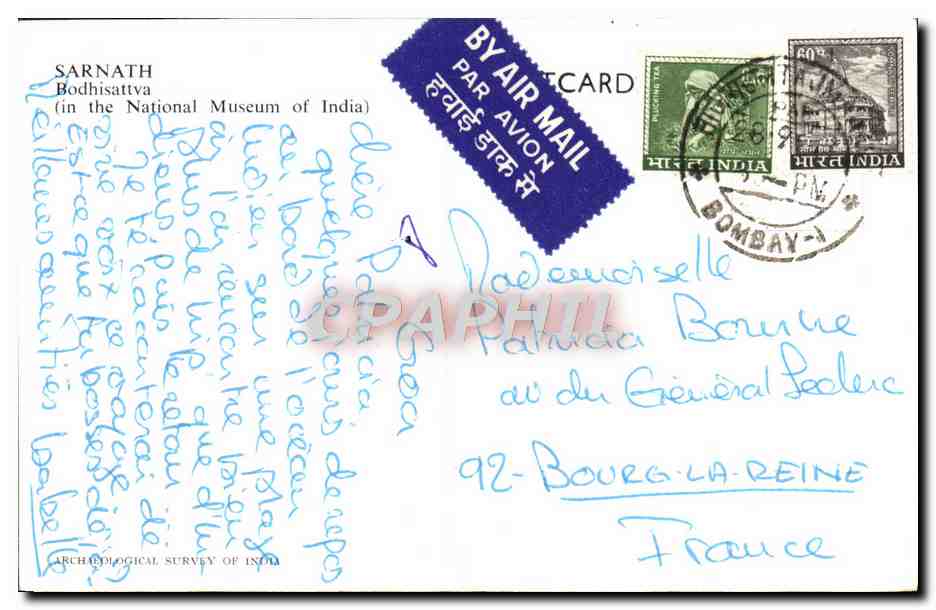 SARNATH
Bodhisattva
(in the National Museum of India)
BY AIR MAIL
PAR AVION
हवाई डाक से
TCARD
PLUCKING TEA
भारत INDIA
60 P
भारत INDIA
BOMBAY-1
PM
CPARHIL
Goa
Chère Patricia
quelques jours de repos
au bord de l'océan
Indien sur une plage
l'on rencontre bien
plus de que d'un
depuis le retour
Je te raconterai de
vive voix ce voyage
Est-ce que tu
Meilleures amitiés
Mademoiselle
Patricia
av du Général Leclerc
92-BOURG-LA-REINE
France
ARCHAEOLOGICAL SURVEY OF INDIA